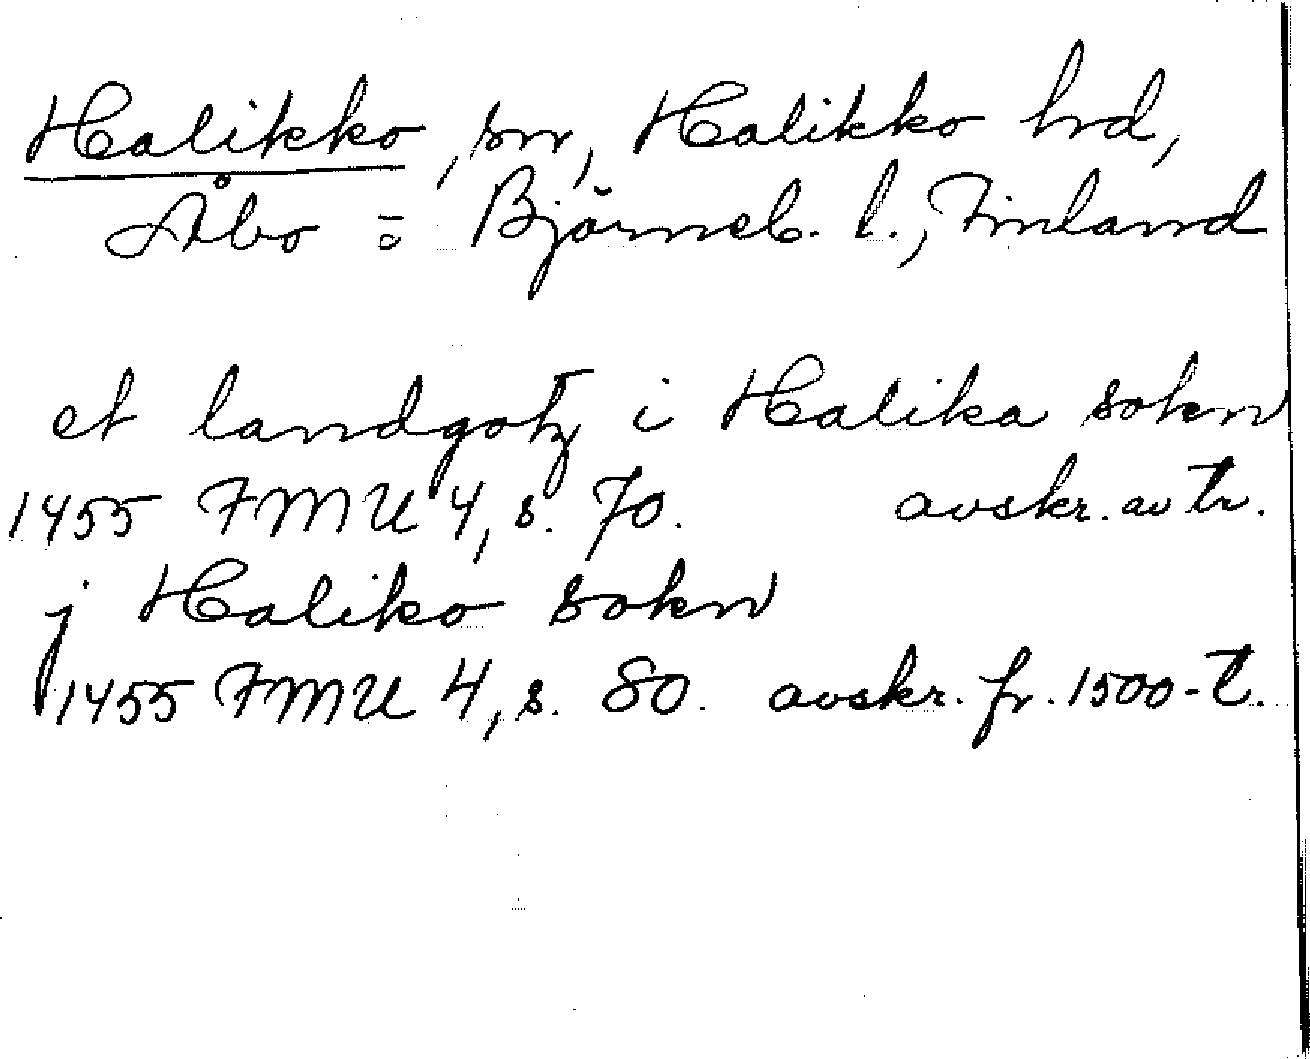 Halikko, sn, Halikko hrd,
Åbo = Björneb. l., Finland
et landgotz i Halika sokn
1455 FMU 4, s. 70. avskr. av tr.
j Haliko sokn
1455 FMU 4, s. 80. avskr. fr. 1500-t.